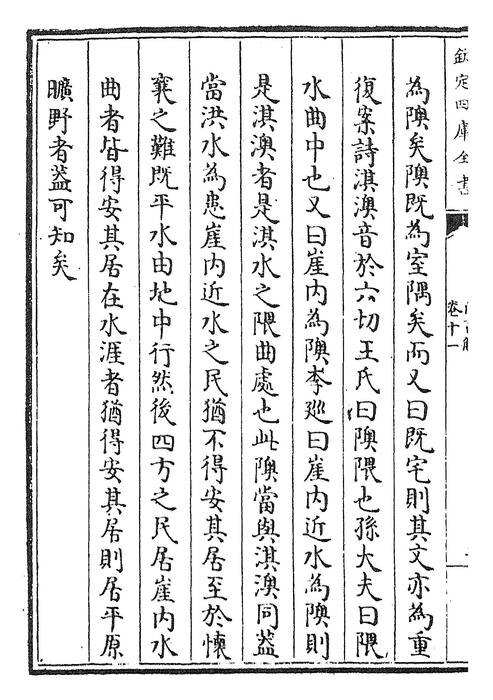 欽定四庫全書
卷十一
為隩矣隩既為室隅矣而又曰既宅則其文亦為重
復案詩淇澳音於六切王氏曰隩隈也孫大夫曰隈
水曲中也又曰崖内為隩李廵曰崖内近水為隩則
是淇澳者是淇水之隈曲處也此隩當與淇澳同葢
當洪水為患崖内近水之民猶不得安其居至於懷
襄之難既平水由地中行然後四方之民居崖内水
曲者皆得安其居在水涯者猶得安其居則居平原
曠野者葢可知矣